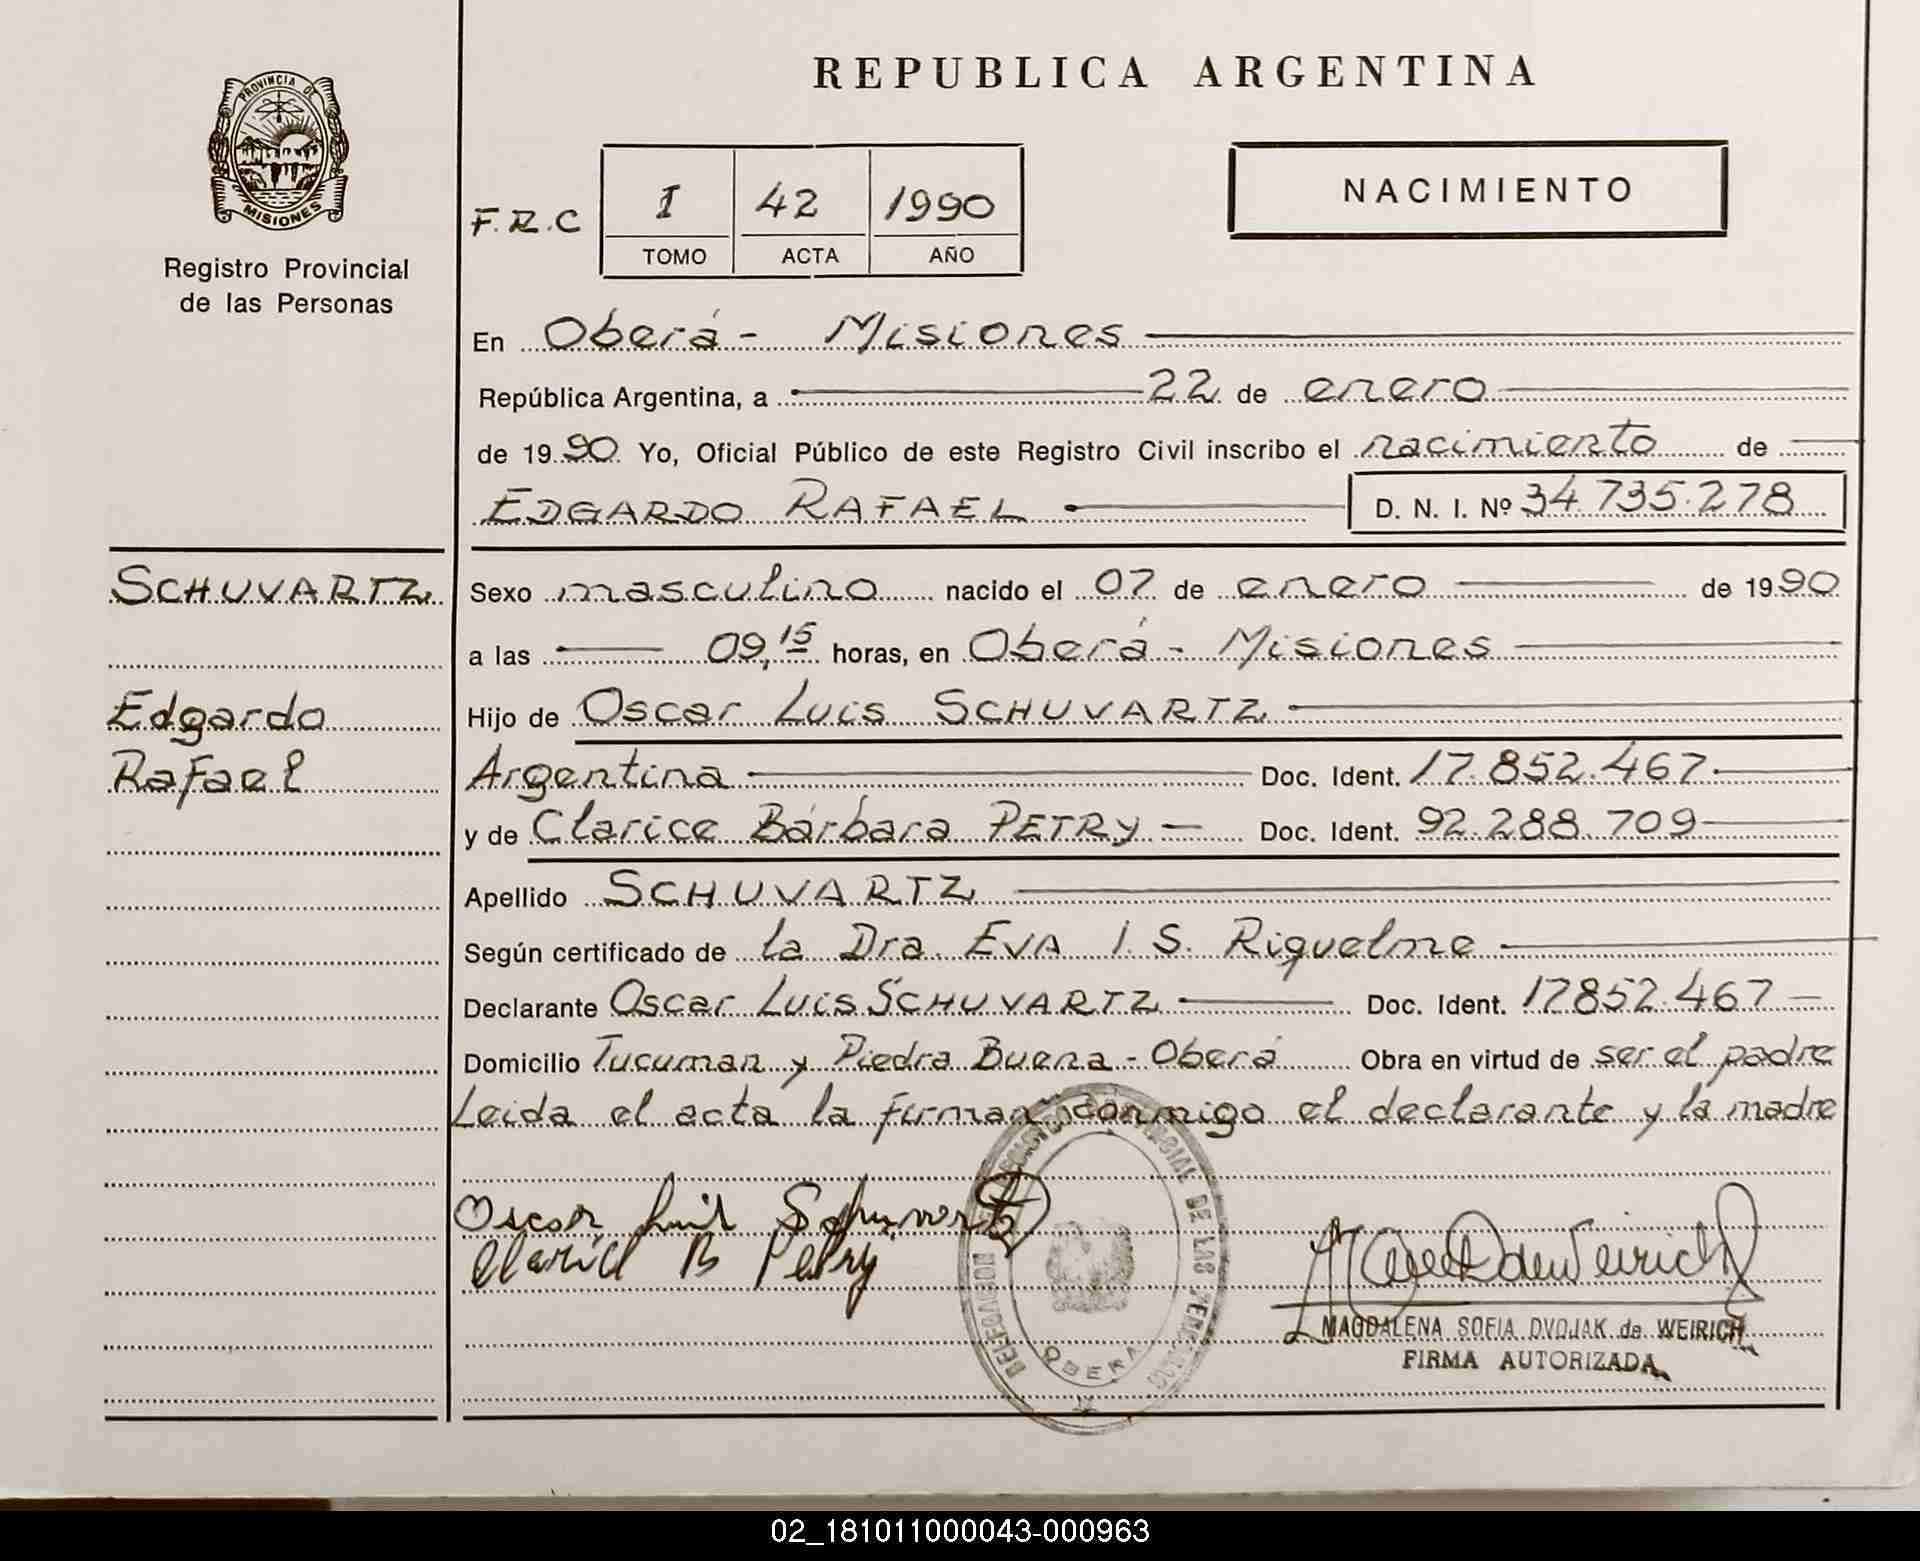 REPUBLICA ARGENTINA
PROVINCIA DE
MISIONES
Registro Provincial
de las Personas
F.R.C
I 42 1990
TOMO ACTA AÑO
NACIMIENTO
En Oberá - Misiones
República Argentina, a 22 de enero
de 1990 Yo, Oficial Público de este Registro Civil inscribo el nacimiento de
EDGARDO RAFAEL D. N. I. Nº 34.735.278
SCHUVARTZ
Edgardo
Rafael
Sexo masculino nacido el 07 de enero de 1990
a las 09,15 horas, en Oberá - Misiones
Hijo de Oscar Luis SCHUVARTZ
Argentina Doc. Ident. 17.852.467
y de Clarice Bárbara PETRY Doc. Ident. 92.288.709
Apellido SCHUVARTZ
Según certificado de la Dra. EVA I. S. Riquelme
Declarante Oscar Luis SCHUVARTZ Doc. Ident. 17852.467
Domicilio Tucuman y Piedra Buena - Oberá Obra en virtud de ser el padre
Leida el acta la firman conmigo el declarante y la madre
Oscar Luis Schuvartz
Claric B Petry
DE LAS
OBERA
MAGDALENA SOFIA DVOJAK de WEIRICH
FIRMA AUTORIZADA
02_181011000043-000963